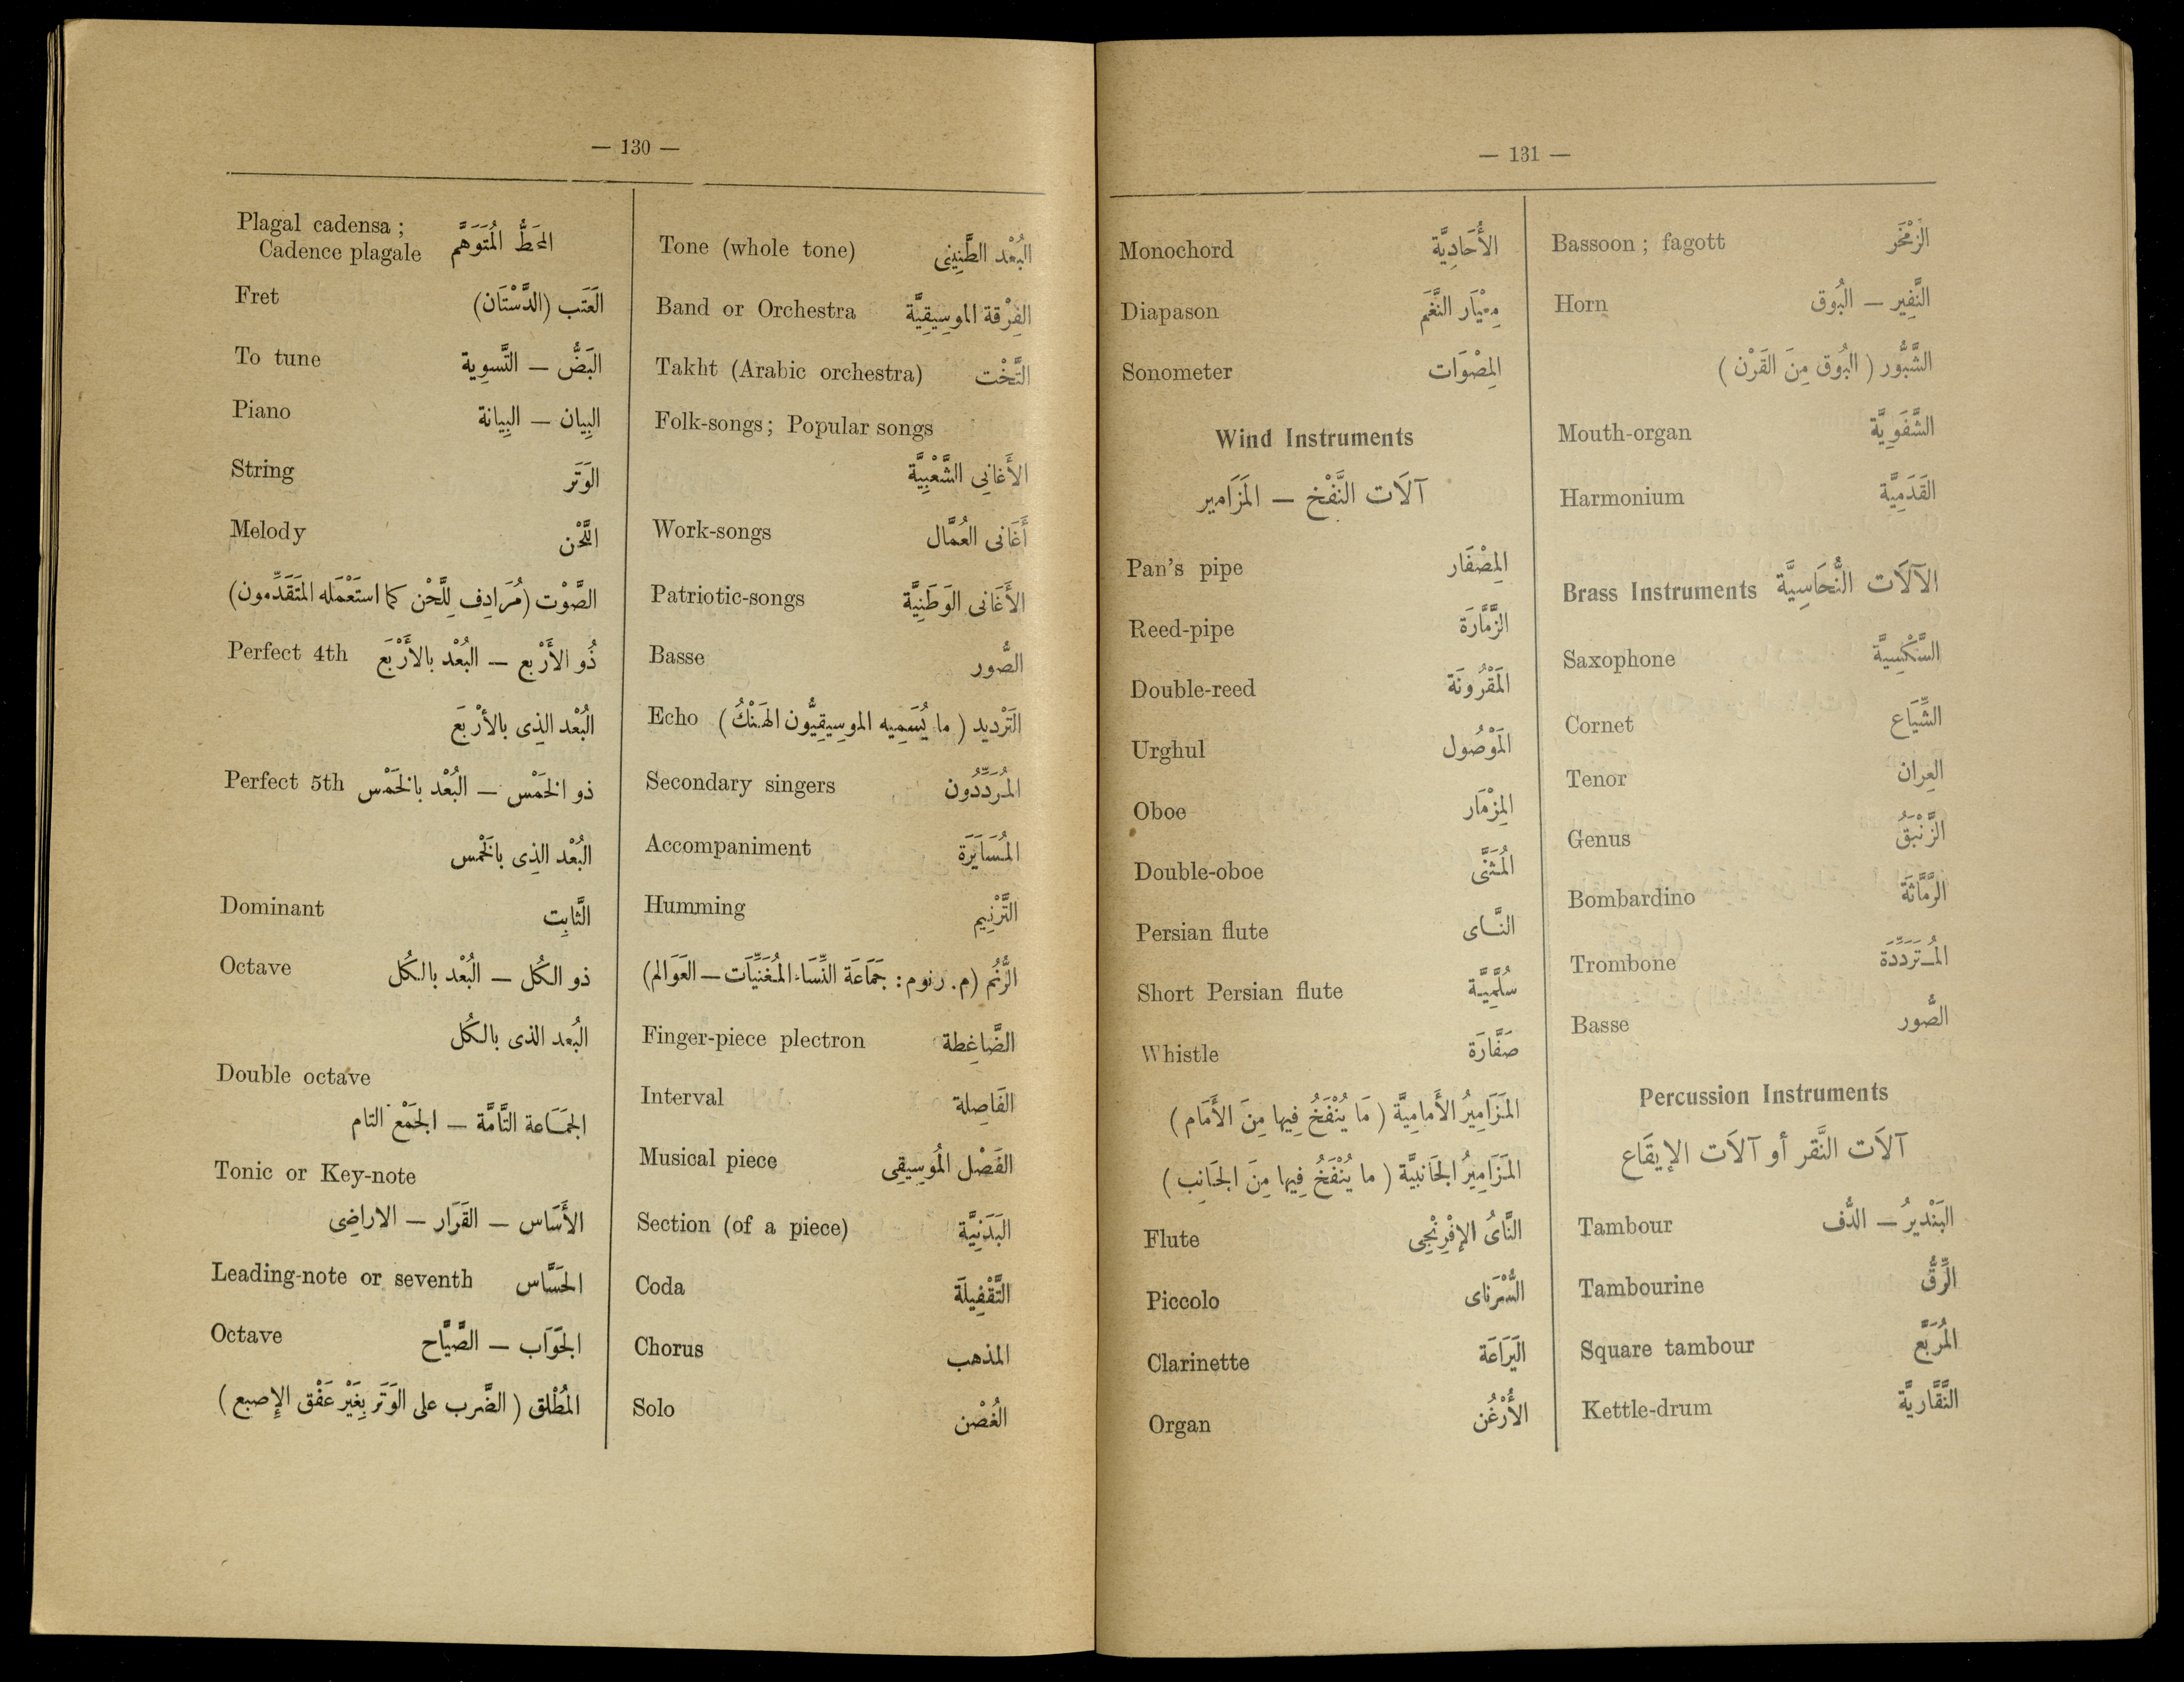 — 130 —
Plagal cadensa ;
Cadence plagale المَحَطُّ المُتَوَهَّم
Fret العَتَب (الدَّسْتَان)
To tune البَضُّ — التَّسوِية
Piano البِيان — البِيانة
String الوَتَر
Melody اللَّحْن
الصَّوْت (مُرَادِف لِلَّحْن كما استَعْمَله المتَقَدِّمون)
Perfect 4th ذُو الأَرْبع — البُعْد بالأَرْبَع
البُعْد الذِى بالأرْبَع
Perfect 5th ذو الخَمْس — البُعْد بالخَمْس
البُعْد الذِى بالخَمْس
Dominant الثَّابِت
Octave ذو الكُل — البُعْد بالكُل
البُعد الذى بالكُل
Double octave
الجَمَاعة التَّامَّة — الجَمْع التام
Tonic or Key-note
الأَسَاس — القَرَار — الاراضِى
Leading-note or seventh الحَسَّاس
Octave الجَوَاب — الصَّيَّاح
المُطْلق ( الضَّرب على الوَتَر بِغَيْر عَفْق الإِصبع )
Tone (whole tone) البُعْد الطَّنِينِى
Band or Orchestra الفِرْقة الموسِيقِيَّة
Takht (Arabic orchestra) التَّخْت
Folk-songs ; Popular songs
الأَغانِى الشَّعْبِيَّة
Work-songs أَغَانى العُمَّال
Patriotic-songs الأَغَانى الوَطَنِيَّة
Basse الصُّور
Echo التَرْديد ( ما يُسَمِيه الموسِيقِيُّون الهَنْكُ )
Secondary singers المُرَدِّدُون
Accompaniment المُسَايَرَة
Humming التَّرْنِيم
الرُّنُم (م. رنوم : جَمَاعَة النِّسَاء المُغَنِّيَات — العَوَالم)
Finger-piece plectron الضَّاغِطة
Interval الفَاصِلة
Musical piece الفَصْل المُوسِيقِى
Section (of a piece) البَدَنِيَّة
Coda التَّقْفِيلَة
Chorus المذهب
Solo الغُصْن
— 131 —
Monochord الأُحَادِيَّة
Diapason مِعْيَار النَّغَم
Sonometer المِصْوَات
Wind Instruments
آلَات النَّفْخ — المَزَامير
Pan's pipe المِصْفَار
Reed-pipe الزَّمَّارَة
Double-reed المَقْرُونَة
Urghul المَوْصُول
Oboe المِزْمَار
Double-oboe المُثَنَّى
Persian flute النَّاى
Short Persian flute سُلَّمِيَّة
Whistle صَفَّارَة
المَزَامِيرُ الأَمامِيَّة ( مَا يُنْفَخُ فِيها مِنَ الأَمَام )
المَزَامِيرُ الجَانبيَّة ( ما يُنْفَخُ فِيها مِنَ الجَانِب )
Flute النَّاىُ الإِفْرِنْجِى
Piccolo السُّرْنَاى
Clarinette اليَرَاعَة
Organ الأُرْغُن
Bassoon ; fagott الزَمْخَر
Horn النَّفِير — البُوق
الشَّبُّور ( البُوق مِنَ القَرْن )
Mouth-organ الشَّفَوِيَّة
Harmonium القَدَمِيَّة
Brass Instruments الآلَات النُّحَاسِيَّة
Saxophone السَّكْسِيَّة
Cornet الشِّيَاع
Tenor العِران
Genus الزَّنْبَقُ
Bombardino الرَّمَّاثَة
Trombone المُتَرَدِّدَة
Basse الصُّور
Percussion Instruments
آلَات النَّقر أو آلَات الإيقَاع
Tambour البَنْديرُ — الدُّف
Tambourine الرِّقُّ
Square tambour المُرَبَّع
Kettle-drum النَّقَّاريَّة